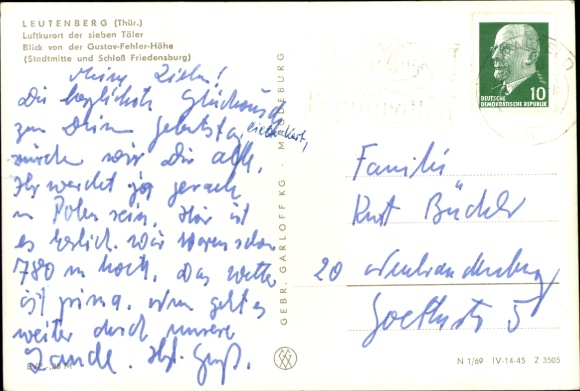 LEUTENBERG (Thür.)
Luftkurort der sieben Täler
Blick von der Gustav-Fehler-Höhe
(Stadtmitte und Schloß Friedensburg)
Meine Lieben!
Die herzlichste Glückwünsche
zum Deinem Geburtstag, lieber Kurt,
wünschen wir Dir alle.
Ihr werdet ja gerade
in Polen sein. Hier ist
es herrlich. Wir waren schon
780 m hoch. Das Wetter
ist prima. Nun geht es
weiter durch unsere
Lande. Hzl. Gruß.
GEBR. GARLOFF KG · MAGDEBURG
DEUTSCHE
DEMOKRATISCHE REPUBLIK
10
Familie
Kurt Bückler
20 Neubrandenburg
Goethestr 5
N 1/69 IV-14-45 Z 3505